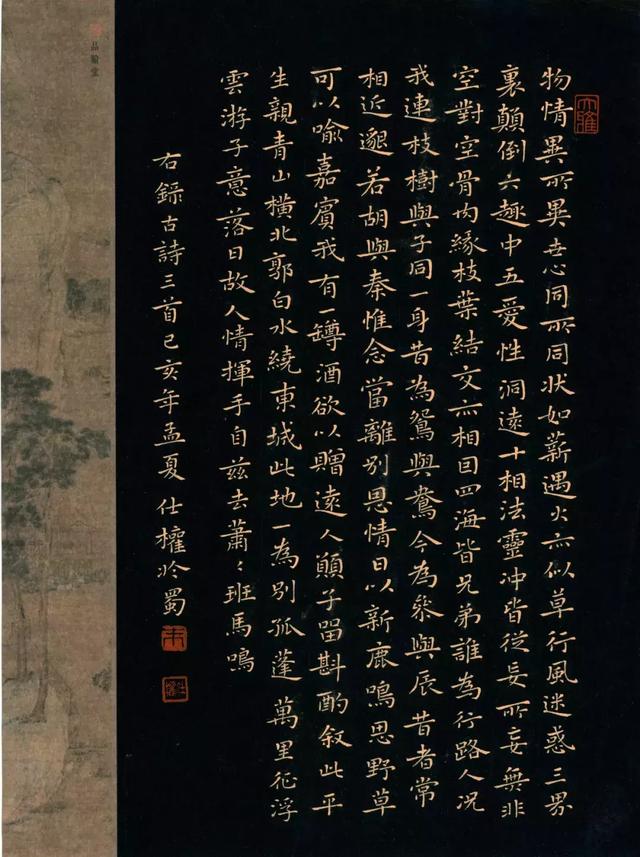 大雅
物情異所異世心同所同狀如薪遇火亦似草行風迷惑三界
裏顛倒六趣中五愛性洞遠十相法靈沖皆從妄所妄無非
空對空骨肉緣枝葉結交亦相囙四海皆兄弟誰為行路人況
我連枝樹與子同一身昔為鴛與鴦今為參與辰昔者常
相近邈若胡與秦惟念當離別恩情日以新鹿鳴思野草
可以喻嘉賓我有一罇酒欲以贈遠人願子留斟酌敘此平
生親青山橫北郭白水繞東城此地一為別孤蓬萬里征浮
雲游子意落日故人情揮手自茲去蕭々班馬鳴
右錄古詩三首己亥年孟夏仕權於蜀
朱
品翰堂